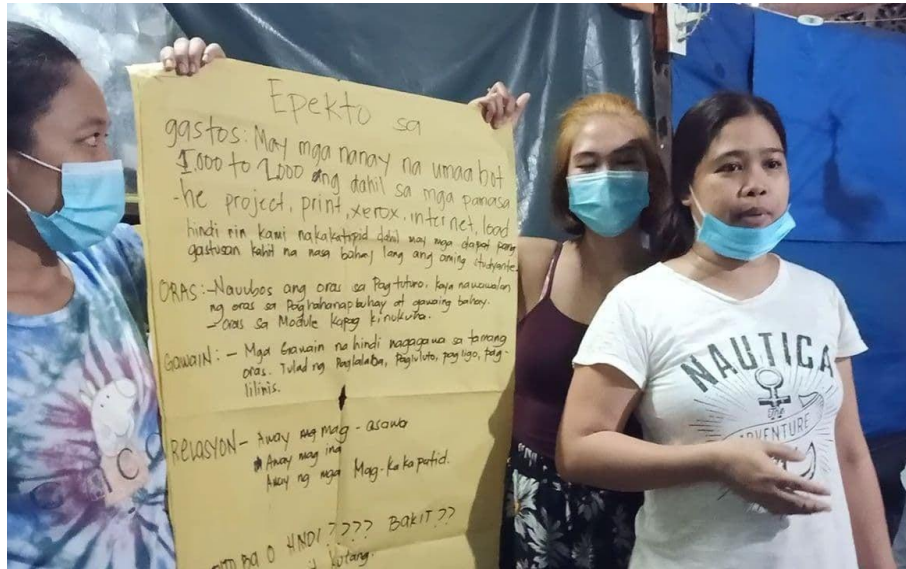 Epekto sa
gastos: May mga nanay na umaabot
1.000 to 2.000 ang dahil sa mga panasa
-he project, print, xerox, internet, load
hindi rin kami nakakatipid dahil may mga dapat pang
gastusan kahit na nasa bahay lang ang aming studyante.
ORAS: - Nauubos ang oras sa Pagtuturo, kaya nawawalan
ng oras sa Paghahanapbuhay at gawaing bahay.
- oras sa Module kapag kinukuha.
GAWAIN: - Mga Gawain na hindi nagagawa sa tamang
oras. Tulad ng Paglalaba, Pagluluto, pagligo, pag-
lilinis.
RELASYON - Away ng mag-asawa
Away mag ina
Away ng mga Mag-kakapatid.
BA O HNDI ???? BAKIT ??
Kutang.
NAUTICA
ADVENTURE